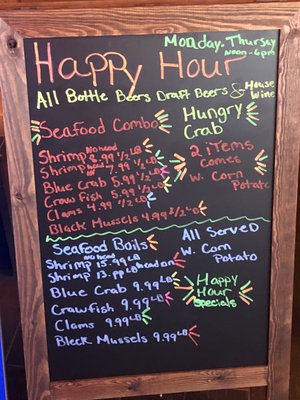 Monday-Thursday
Noon-6pm
Happy Hour
All Bottle Beers Draft Beers & House Wine
Seafood Combo
Hungry Crab
Shrimp No head 8.99 1/2 LB
Shrimp head on 7.99 1/2 LB
Blue Crab 5.99 1/2 LB
Craw Fish 5.99 1/2 LB
Clams 4.99 1/2 LB
Black Mussels 4.99 1/2 LB
2 iTems
Comes
W. Corn
Potato
Seafood Boils
Shrimp No head 15.99 LB
Shrimp 13.99 LB head on
Blue Crab 9.99 LB
Crawfish 9.99 LB
Clams 9.99 LB
Bleck Mussels 9.99 LB
All Served
W. Corn
Potato
Happy
Hour
Specials